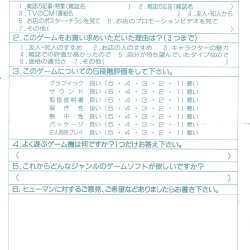 1. 雑誌の記事・特集(雑誌名　　　) 2. 雑誌の広告(雑誌名　　　)
3. TVのCM(番組名　　　) 4. 友人・知人から
5. お店のポスター・チラシを見て 6. お店のプロモーションビデオを見て
7. その他(　　　)
2. このゲームをお買い求めいただいた理由は?(3つまで)
1. 友人・知人のすすめ 2. お店の人のすすめ 3. キャラクターの魅力
4. 雑誌での評判が良かったので 5. 自分が持ち望んでいたタイプなので
6. 価格の適当さ 7. その他(　　　)
3. このゲームについての5段階評価をして下さい。
グラフィック 良い(5・4・3・2・1)悪い
サウンド 良い(5・4・3・2・1)悪い
取扱説明書 良い(5・4・3・2・1)悪い
操作性 良い(5・4・3・2・1)悪い
熱中性 良い(5・4・3・2・1)悪い
パッケージ 良い(5・4・3・2・1)悪い
2人同時プレイ 良い(5・4・3・2・1)悪い
4. よく遊ぶゲーム機は何ですか?1つだけお答え下さい。
(　　　)
5. これからどんなジャンルのゲームソフトが欲しいですか?
(　　　)
6. ヒューマンに対するご意見、ご希望などありましたらお書き下さい。